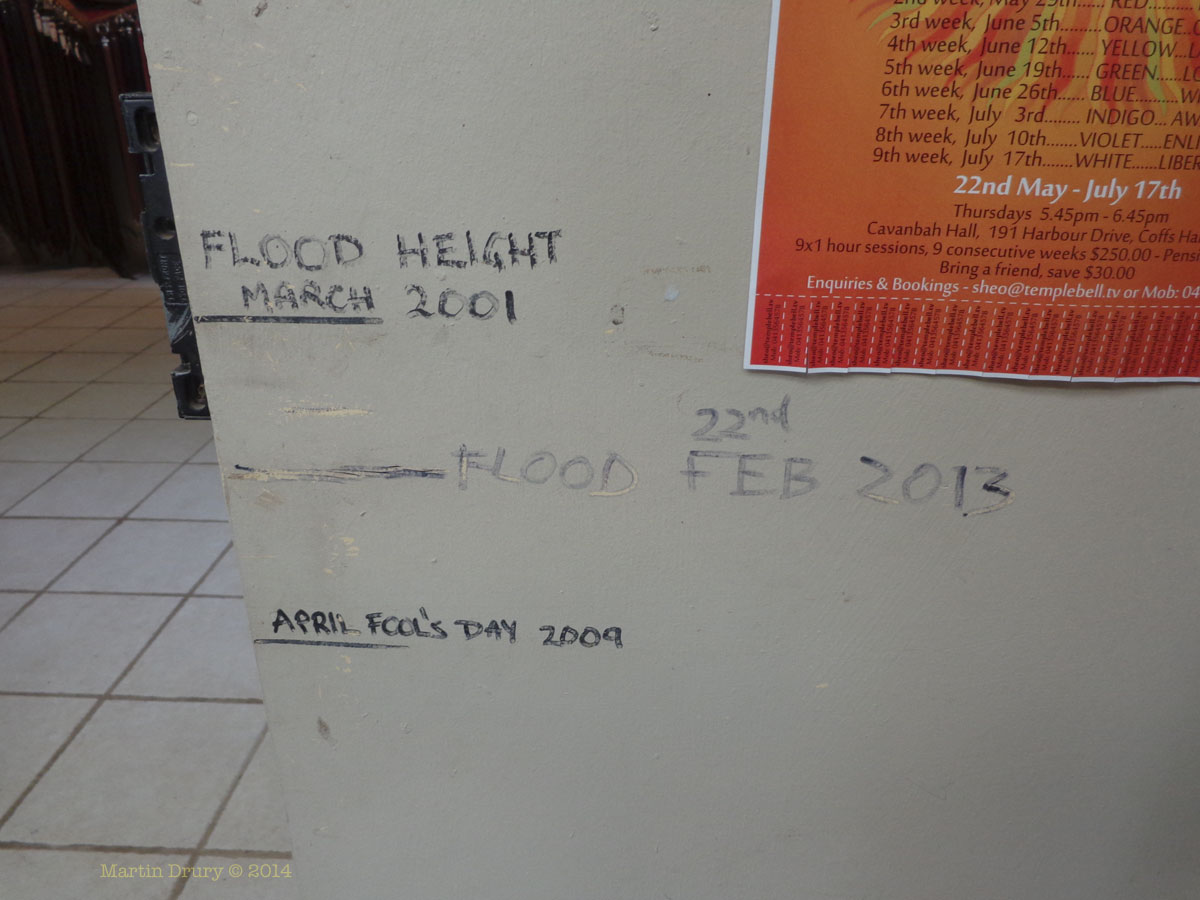 3rd week, June 5th.........ORANGE..
4th week, June 12th...... YELLOW...
5th week, June 19th...... GREEN.....
6th week, June 26th...... BLUE.........
7th week, July 3rd........ INDIGO...
8th week, July 10th.......VIOLET.....
9th week, July 17th.......WHITE......
22nd May - July 17th
Thursdays 5.45pm - 6.45pm
Cavanbah Hall, 191 Harbour Drive, Coffs
9x1 hour sessions, 9 consecutive weeks $250.00 -
Bring a friend, save $30.00
Enquiries & Bookings - sheo@templebell.tv or Mob: 04
FLOOD HEIGHT
MARCH 2001
22nd
FLOOD FEB 2013
APRIL FOOL'S DAY 2009
Martin Drury © 2014